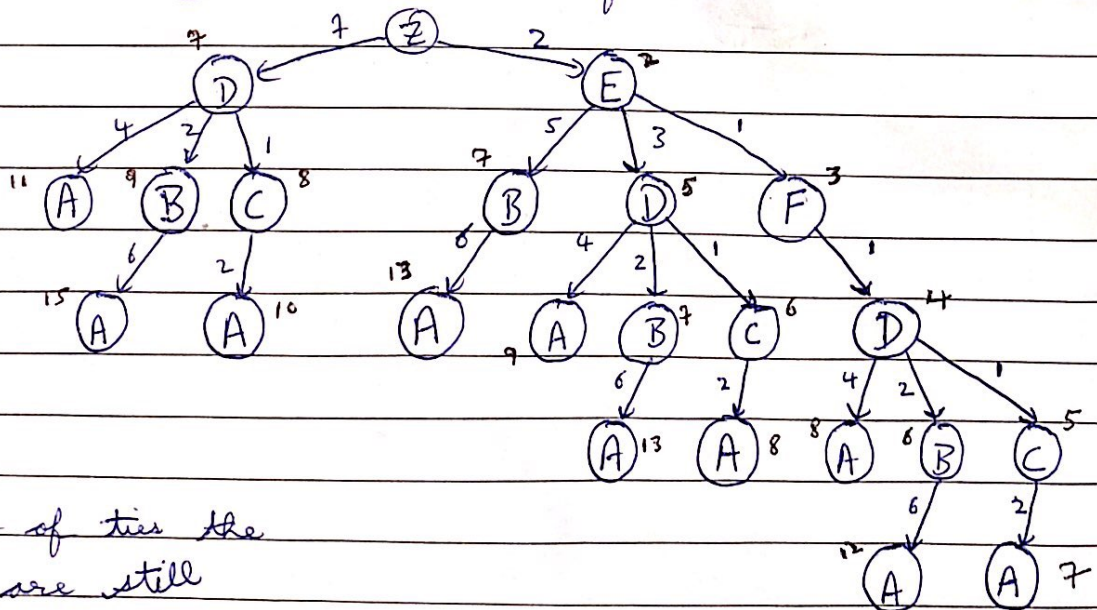 7 Z 2
7 D E 2
4 2 1 5 3 1
11 A 9 B C 8 7 B D 5 F 3
6 2 6 4 2 1 1
15 A A 10 13 A 9 A B 7 C 6 D 4
6 2 4 2 1
A 13 A 8 8 A 6 B C 5
of ties the 6 2
are still 12 A A 7